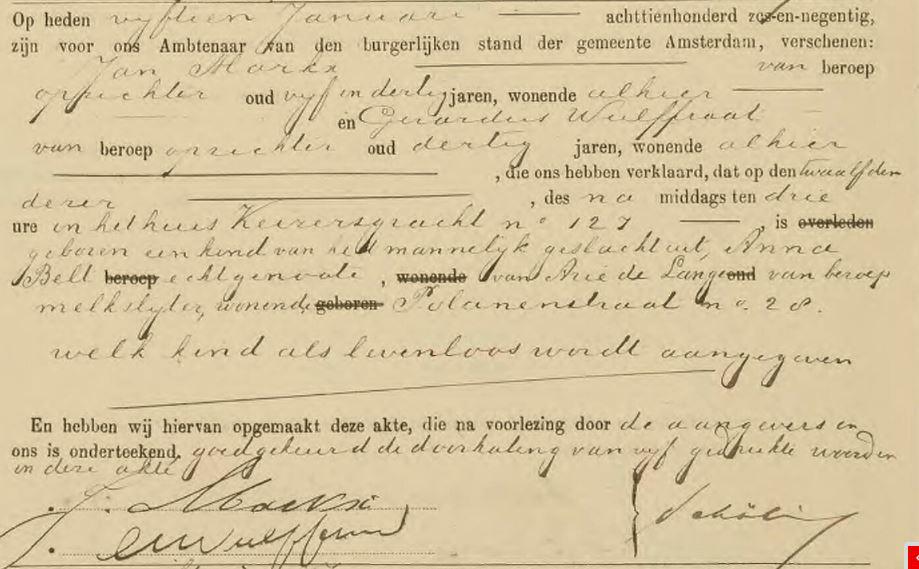 Op heden vyftien Januari achttienhonderd zes-en-negentig,
zijn voor ons Ambtenaar van den burgerlijken stand der gemeente Amsterdam, verschenen:
Jan Marks van beroep
opzichter oud vyf en dertig jaren, wonende alhier
en Gerardus Wulffraat
van beroep opzichter oud dertig jaren, wonende alhier
, die ons hebben verklaard, dat op den twaalfden
dezer , des na middags ten drie
ure in het huis Keizersgracht no 127 is overleden
geboren een kind van het mannelyk geslacht uit, Anna
Belt beroep echtgenoote , wonende van Arie de Lange oud van beroep
melkslyter, wonende geboren Polanenstraat no. 28.
welk kind als levenloos wordt aangegeven
En hebben wij hiervan opgemaakt deze akte, die na voorlezing door de aangevers en
ons is onderteekend. goedgekeurd de doorhaling van vyf gedrukte woorden
in deze akte
J. Marks